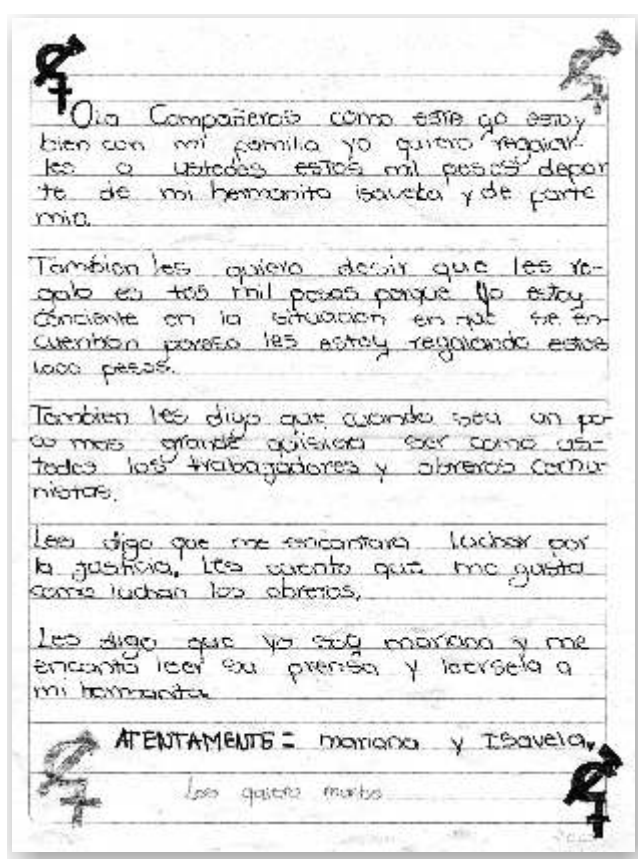 Ola Compañeros como estan yo estoy
bien con mi familia yo quiero regalar-
les a ustedes estos mil pesos depar
te de mi hermanita isavela y de parte
mia.
Tambien les quiero desir que les re-
galo es tos mil pesos porque yo estoy
conciente en la situacion en que se en-
cuentran poreso les estoy regalando estos
1000 pesos.
Tambien les digo que cuando sea un po-
co mas grande quisiera ser como us-
tedes los trabagadores y obreros comu-
nistas.
Les digo que me encantara luchar por
la justicia. Les cuento que me gusta
como luchan los obreros.
Les digo que yo soy mariana y me
encanta leer su prensa y leersela a
mi hermanita.
ATENTAMENTE = mariana y Isavela.
Los quiero mucho